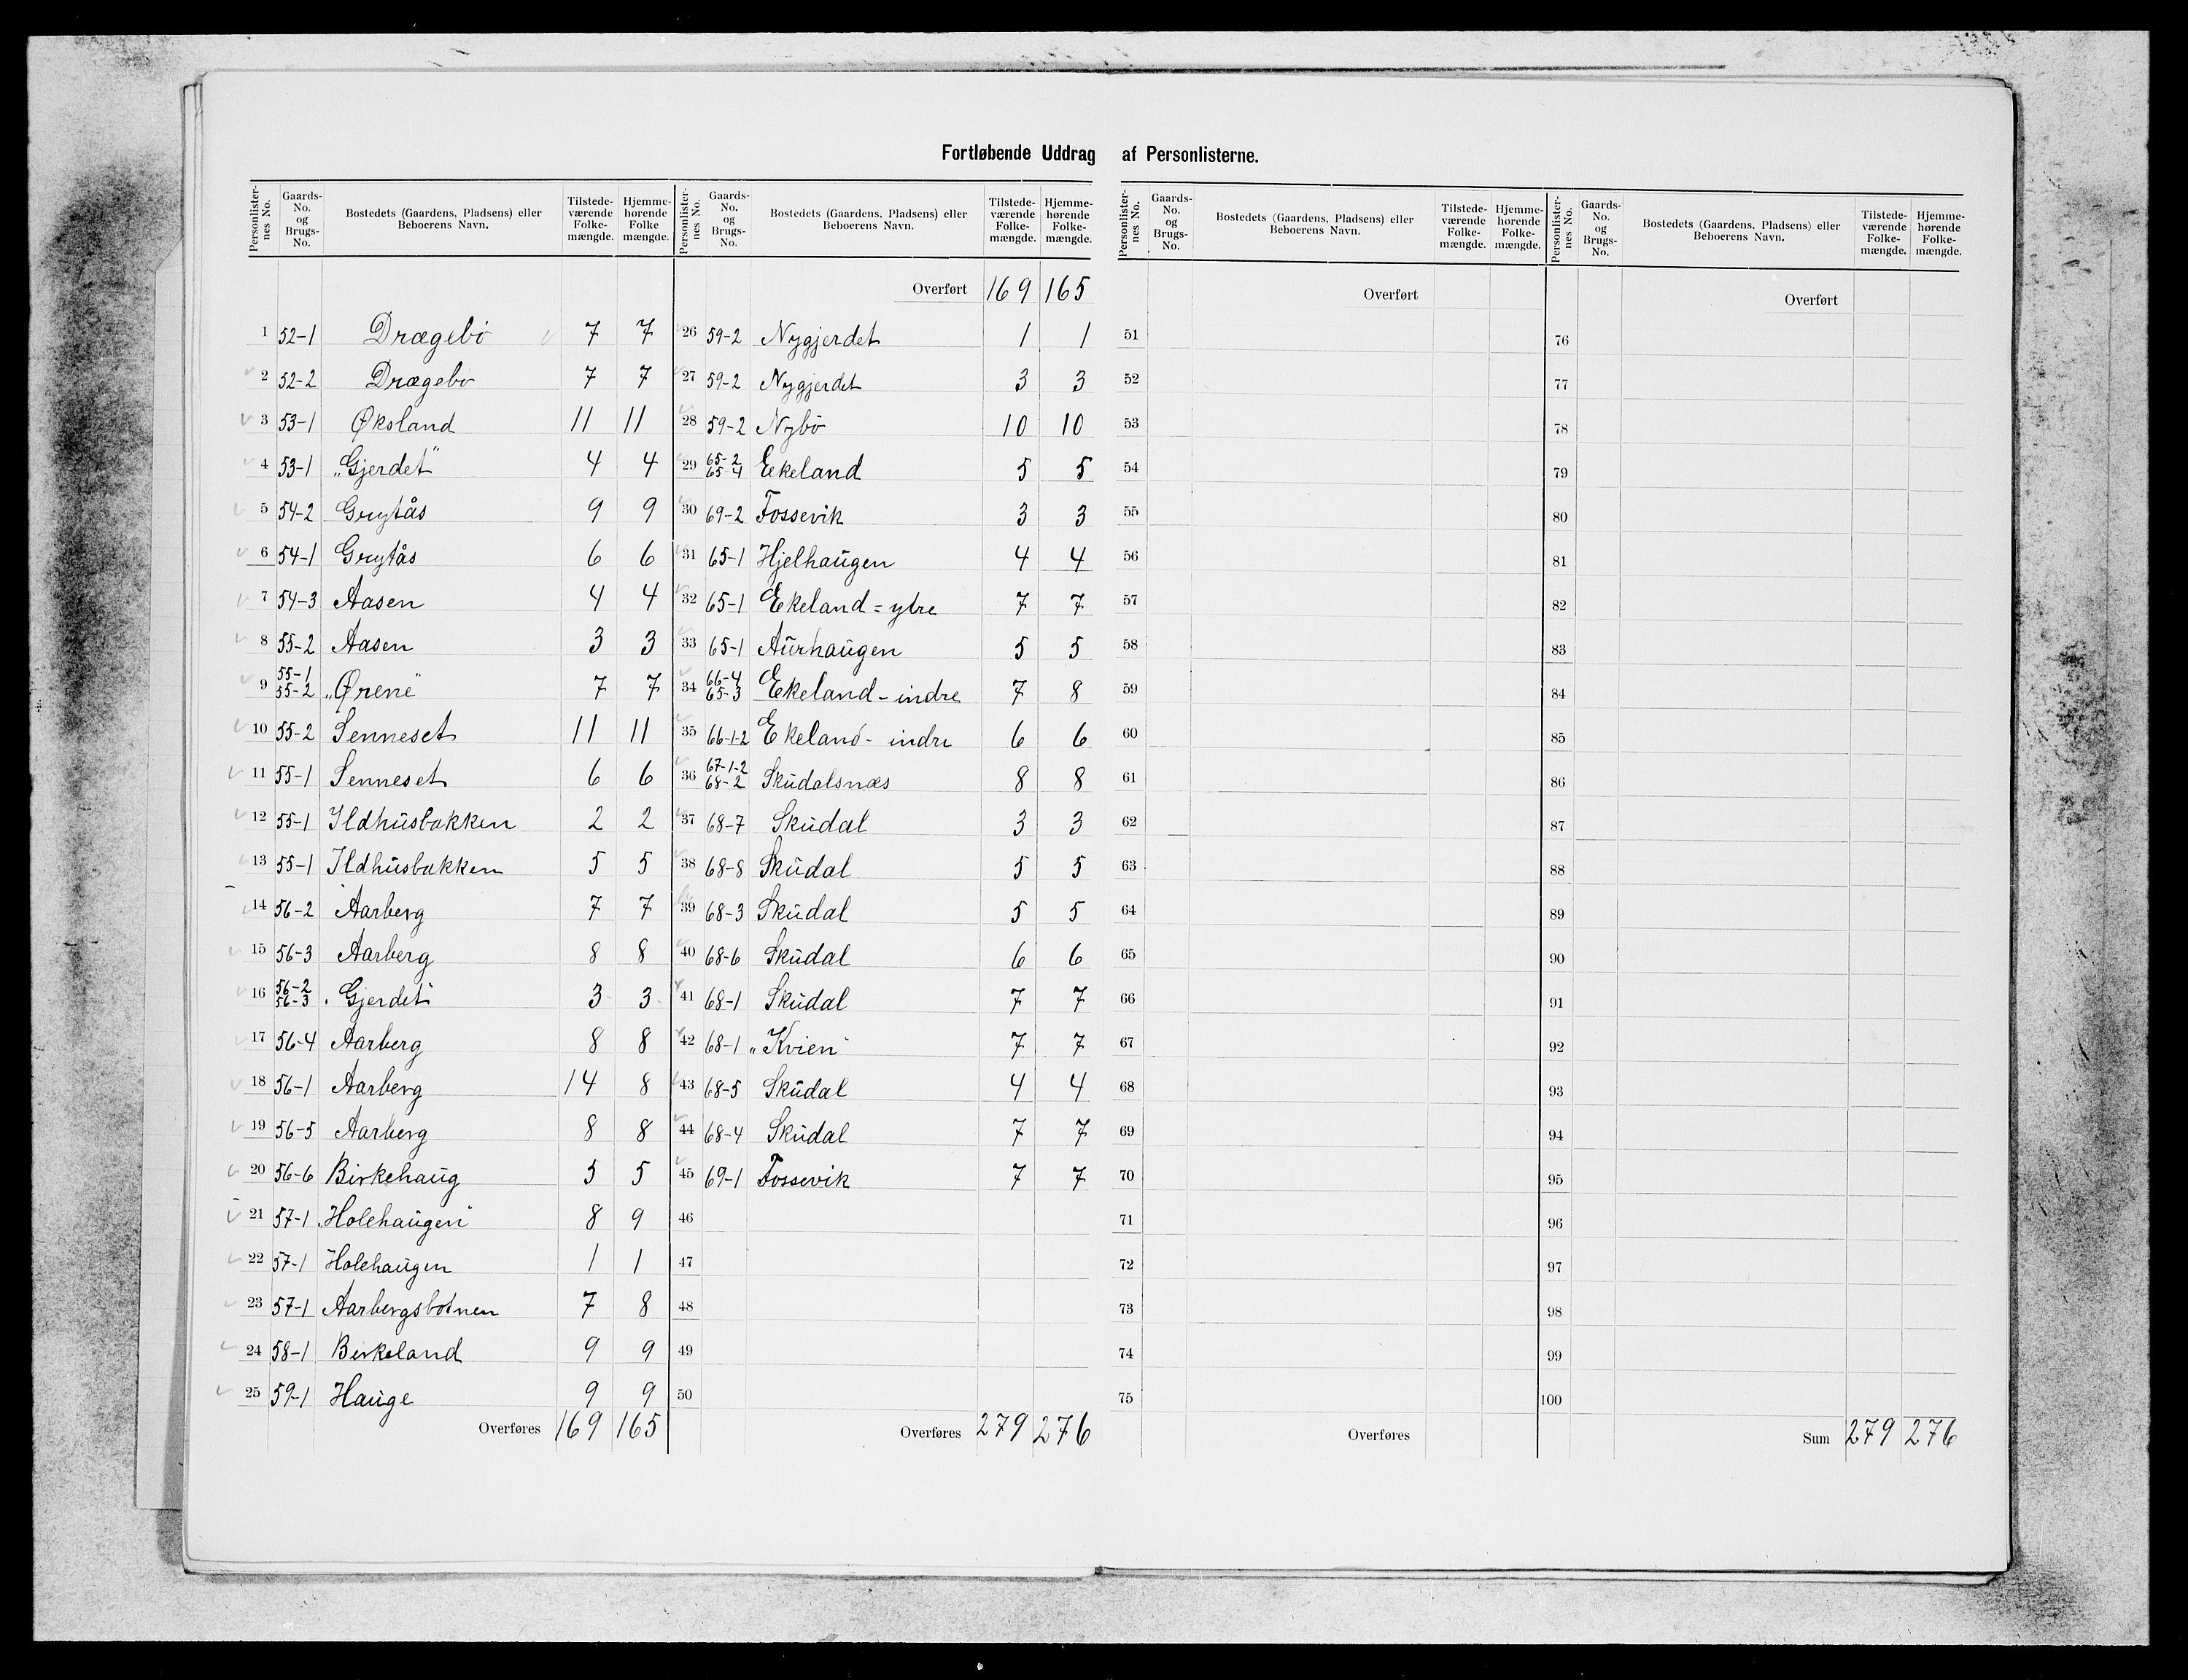 Fortløbende Uddrag af Personlisterne.
Personlister-nes No. | Gaards-No. og Brugs-No. | Bostedets (Gaardens, Pladsens) eller Beboerens Navn. | Tilstede-værende Folke-mængde. | Hjemme-hørende Folke mængde.
1 52-1 Drægebö 7 7
2 52-2 Drægebö 7 7
3 53-1 Øksland 11 11
4 53-1 „Gjerdet" 4 4
5 54-2 Grytås 9 9
6 54-1 Grytås 6 6
7 54-3 Aasen 4 4
8 55-2 Aasen 3 3
9 55-1 55-2 „Ørene" 7 7
10 55-2 Senneset 11 11
11 55-1 Senneset 6 6
12 55-1 Ildhusbakken 2 2
13 55-1 Ildhusbakken 5 5
14 56-2 Aarberg 7 7
15 56-3 Aarberg 8 8
16 56-2 56-3 „Gjerdet" 3 3
17 56-4 Aarberg 8 8
18 56-1 Aarberg 14 8
19 56-5 Aarberg 8 8
20 56-6 Birkehaug 5 5
21 57-1 „Holehaugen" 8 9
22 57-1 Holehaugen 1 1
23 57-1 Aarbergsbotnen 7 8
24 58-1 Birkeland 9 9
25 59-1 Hauge 9 9
Overføres 169 165
Personlister-nes No. | Gaards-No. og Brugs-No. | Bostedets (Gaardens, Pladsens) eller Beboerens Navn. | Tilstede-værende Folke-mængde. | Hjemme-hørende Folke-mængde.
Overført 169 165
26 59-2 Nygjerdet 1 1
27 59-2 Nygjerdet 3 3
28 59-2 Nybö 10 10
29 65-2 65-4 Ekeland 5 5
30 69-2 Fossevik 3 3
31 65-1 Hjelhaugen 4 4
32 65-1 Ekeland = ytre 7 7
33 65-1 Aurhaugen 5 5
34 66-4 65-3 Ekeland - indre 7 8
35 66-1-2 Ekeland - indre 6 6
36 67-1-2 68-2 Skudalsnæs 8 8
37 68-7 Skudal 3 3
38 68-8 Skudal 5 5
39 68-3 Skudal 5 5
40 68-6 Skudal 6 6
41 68-1 Skudal 7 7
42 68-1 „Kvien" 7 7
43 68-5 Skudal 4 4
44 68-4 Skudal 7 7
45 69-1 Fossevik 7 7
46
47
48
49
50
Overføres 279 276
Personlister-nes No. | Gaards-No. og Brugs-No. | Bostedets (Gaardens, Pladsens) eller Beboerens Navn. | Tilstede-værende Folke-mængde. | Hjemme-hørende Folke-mængde.
Overført
51
52
53
54
55
56
57
58
59
60
61
62
63
64
65
66
67
68
69
70
71
72
73
74
75
Overføres
Personlister-nes No. | Gaards-No. og Brugs-No. | Bostedets (Gaardens, Pladsens) eller Beboerens Navn. | Tilstede-værende Folke-mængde. | Hjemme-hørende Folke-mængde.
Overført
76
77
78
79
80
81
82
83
84
85
86
87
88
89
90
91
92
93
94
95
96
97
98
99
100
Sum 279 276